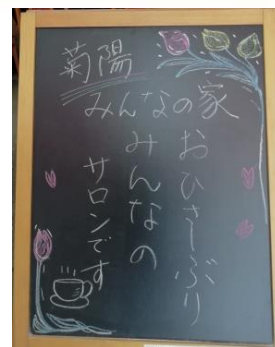 菊陽
みんなの家
おひさしぶり
みんなの
サロンです